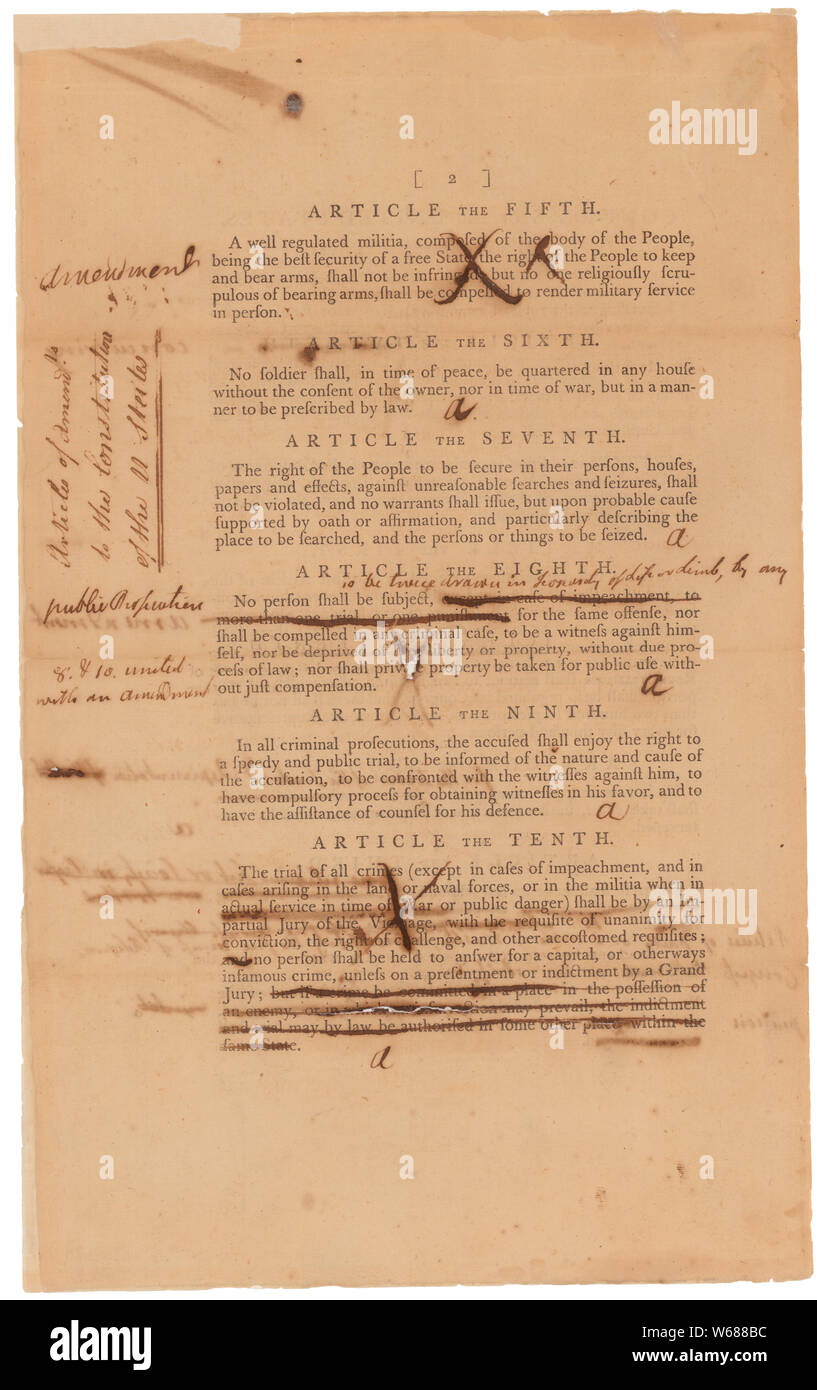 [ 2 ]
ARTICLE THE FIFTH.
A well regulated militia, compoſed of the body of the People,
being the beſt ſecurity of a free State, the right of the People to keep
and bear arms, ſhall not be infringed, but no one religiouſly ſcru-
pulous of bearing arms, ſhall be compelled to render military ſervice
in perſon.
Amendment
ARTICLE THE SIXTH.
No ſoldier ſhall, in time of peace, be quartered in any houſe
without the conſent of the owner, nor in time of war, but in a man-
ner to be preſcribed by law. a
Articles of Amend.ts
to the Constitution
of the U States
ARTICLE THE SEVENTH.
The right of the People to be ſecure in their perſons, houſes,
papers and effects, againſt unreaſonable ſearches and ſeizures, ſhall
not be violated, and no warrants ſhall iſſue, but upon probable cauſe
ſupported by oath or affirmation, and particularly deſcribing the
place to be ſearched, and the perſons or things to be ſeized. a
ARTICLE THE EIGHTH.
to be twice in jeopardy of life or limb, by any
public Prosecution
No perſon ſhall be ſubject, except in caſe of impeachment, to
more than one trial or one puniſhment for the ſame offenſe, nor
ſhall be compelled in any criminal caſe, to be a witneſs againſt him-
ſelf, nor be deprived of life, liberty or property, without due pro-
ceſs of law; nor ſhall private property be taken for public uſe with-
out juſt compenſation. a
8. & 10. united
with an amendment
ARTICLE THE NINTH.
In all criminal proſecutions, the accuſed ſhall enjoy the right to
a ſpeedy and public trial, to be informed of the nature and cauſe of
the accuſation, to be confronted with the witneſſes againſt him, to
have compulſory proceſs for obtaining witneſſes in his favor, and to
have the aſſiſtance of counſel for his defence. a
ARTICLE THE TENTH.
The trial of all crimes (except in caſes of impeachment, and in
caſes ariſing in the land or naval forces, or in the militia when in
actual ſervice in time of War or public danger) ſhall be by an im-
partial Jury of the Vicinage, with the requiſite of unanimity for
conviction, the right of challenge, and other accoſtomed requiſites;
and no perſon ſhall be held to anſwer for a capital, or otherways
infamous crime, unleſs on a preſentment or indictment by a Grand
Jury; but if a crime be committed in a place in the poſſeſſion of
an enemy, or in which an inſurrection may prevail, the indictment
and trial may by law be authoriſed in ſome other place within the
ſame State.
a
alamy
Image ID: W688BC
www.alamy.com